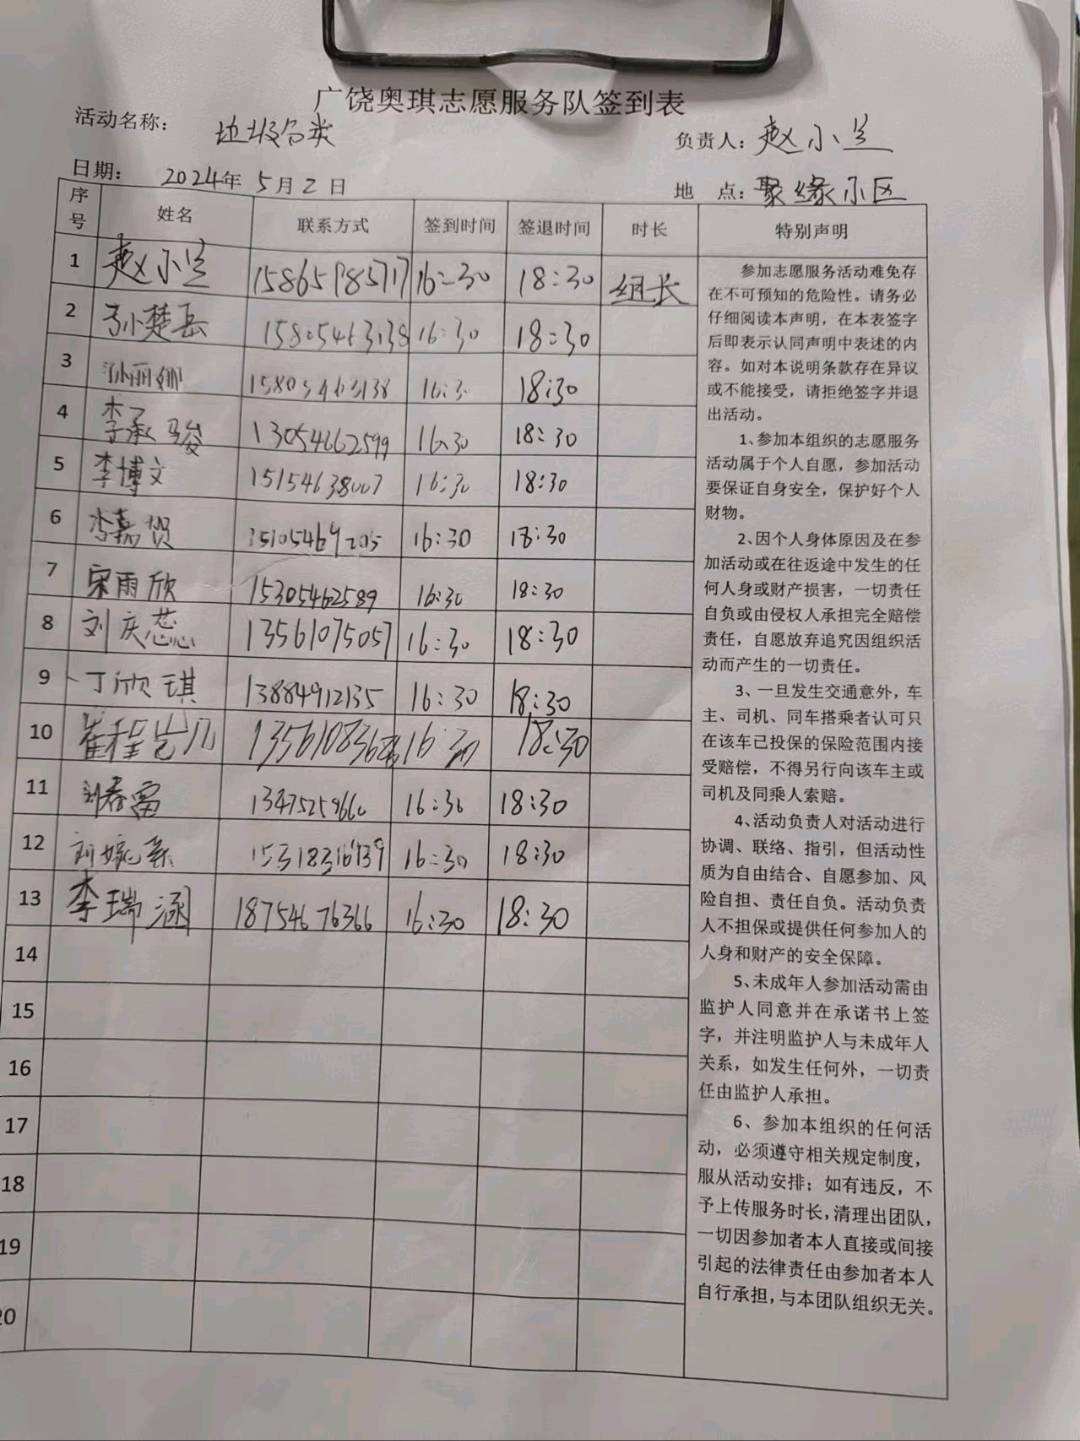 广饶奥琪志愿服务队签到表
活动名称： 垃圾分类 负责人：赵小兰
日期： 2024年 5月2日 地 点：聚缘小区
序号 姓名 联系方式 签到时间 签退时间 时长 特别声明
1 赵小兰 15865985717 16:30 18:30 组长
2 孙楚岳 15805463138 16:30 18:30
3 孙丽娜 15805463138 16:3 18:30
4 李承骏 13054662599 16:30 18:30
5 李博文 15154638007 16:30 18:30
6 李嘉贺 16:30 18:30
7 宋雨欣 15305462589 16:30 18:30
8 刘庆蕊 13561075057 16:30 18:30
9 丁欣琪 13884912135 16:30 18:30
10 16:30 18:30
11 刘春雷 16:30 18:30
12 15318316939 16:30 18:30
13 李瑞涵 18754676366 16:30 18:30
14
15
16
17
18
19
20
参加志愿服务活动难免存
在不可预知的危险性。请务必
仔细阅读本声明，在本表签字
后即表示认同声明中表述的内
容。如对本说明条款存在异议
或不能接受，请拒绝签字并退
出活动。
1、参加本组织的志愿服务
活动属于个人自愿，参加活动
要保证自身安全，保护好个人
财物。
2、因个人身体原因及在参
加活动或在往返途中发生的任
何人身或财产损害，一切责任
自负或由侵权人承担完全赔偿
责任，自愿放弃追究因组织活
动而产生的一切责任。
3、一旦发生交通意外，车
主、司机、同车搭乘者认可只
在该车已投保的保险范围内接
受赔偿，不得另行向该车主或
司机及同乘人索赔。
4、活动负责人对活动进行
协调、联络、指引，但活动性
质为自由结合、自愿参加、风
险自担、责任自负。活动负责
人不担保或提供任何参加人的
人身和财产的安全保障。
5、未成年人参加活动需由
监护人同意并在承诺书上签
字，并注明监护人与未成年人
关系，如发生任何外，一切责
任由监护人承担。
6、参加本组织的任何活
动，必须遵守相关规定制度，
服从活动安排；如有违反，不
予上传服务时长，清理出团队，
一切因参加者本人直接或间接
引起的法律责任由参加者本人
自行承担，与本团队组织无关。